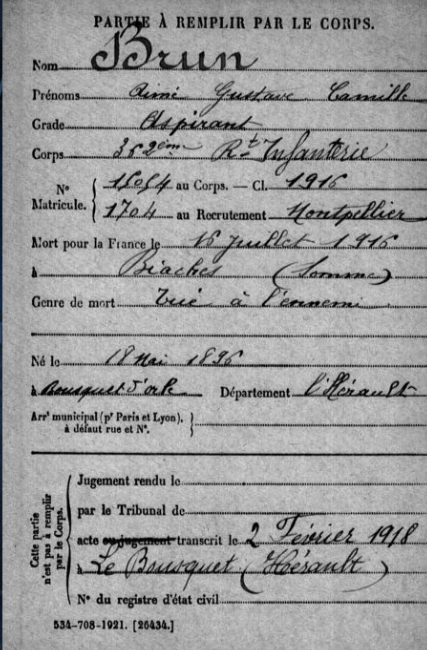 PARTIE À REMPLIR PAR LE CORPS.
Nom Brun
Prénoms Aimé Gustave Camille
Grade Aspirant
Corps 362ème Rt Infanterie
N° Matricule. { 15054 au Corps. — Cl. 1916
1704 au Recrutement Montpellier
Mort pour la France le 16 Juillet 1916
à Biaches (Somme)
Genre de mort Tué à l'ennemi
Né le 18 Mai 1896
à Bousquet d'orb Département l'Hérault
Arrt municipal (pr Paris et Lyon), à défaut rue et N°. }
Cette partie n'est pas à remplir par le Corps. { Jugement rendu le
par le Tribunal de
acte ou jugement transcrit le 2 Février 1918
à Le Bousquet (Hérault)
N° du registre d'état civil
534-708-1921. [26434.]